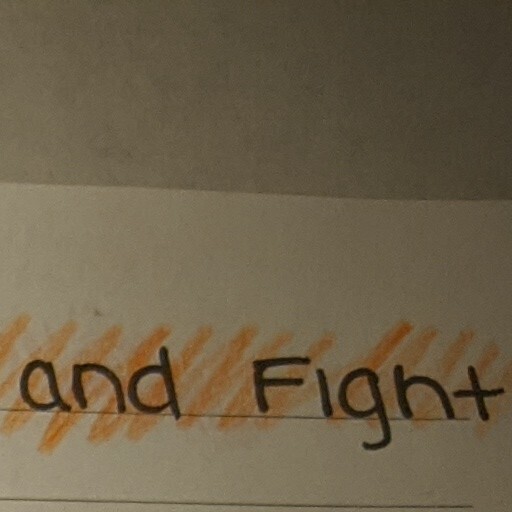 and Fight